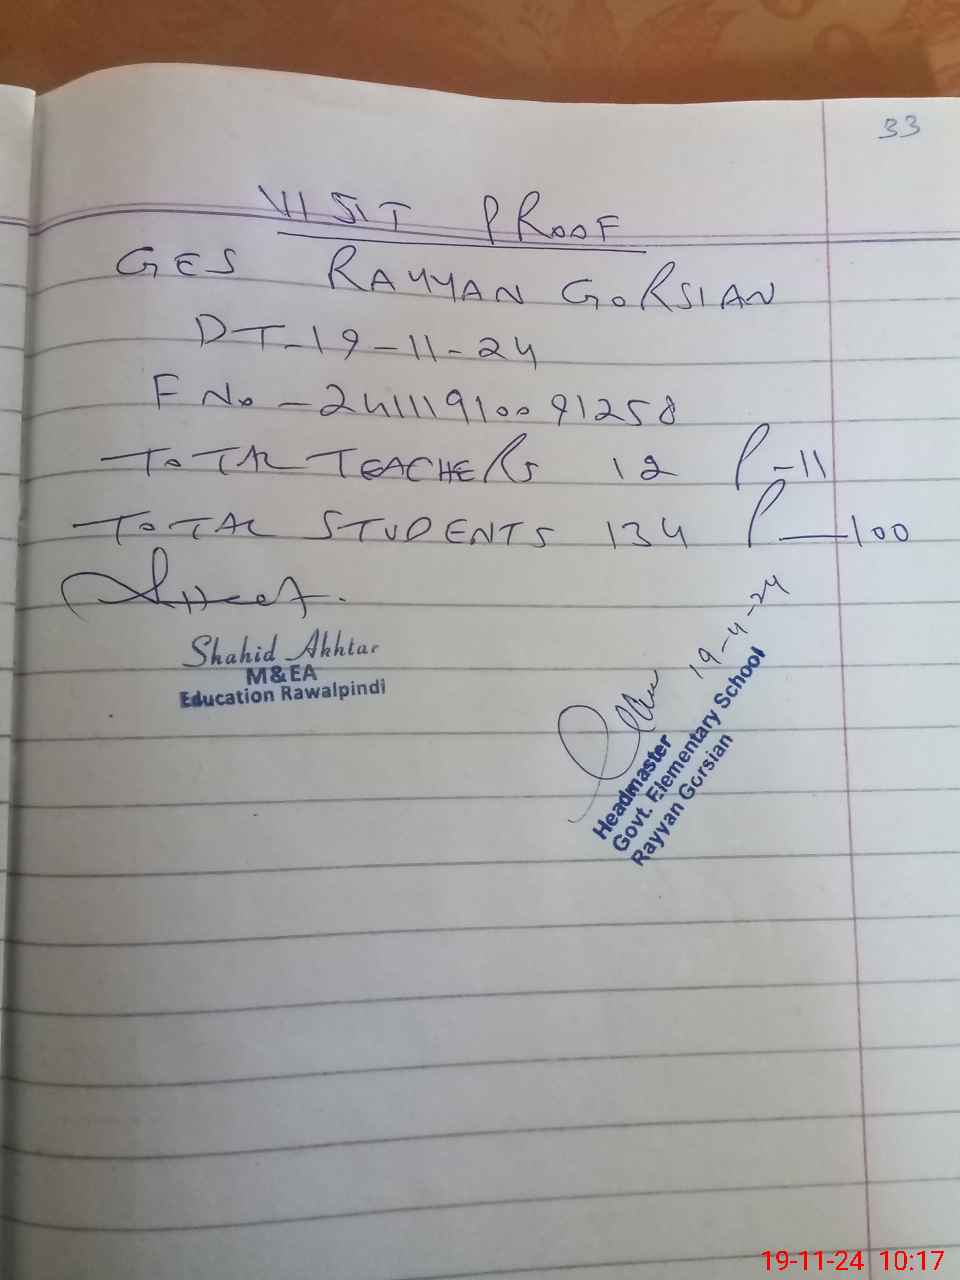 33
VISIT PROOF
GES RAYYAN GORSIAN
DT-19-11-24
F No - 24111910091258
TOTAL TEACHERS 12 P-11
TOTAL STUDENTS 134 P-100
Shahid Akhtar
M&EA
Education Rawalpindi
19-4-24
Headmaster
Govt. Elementary School
Rayyan Gorsian
19-11-24 10:17